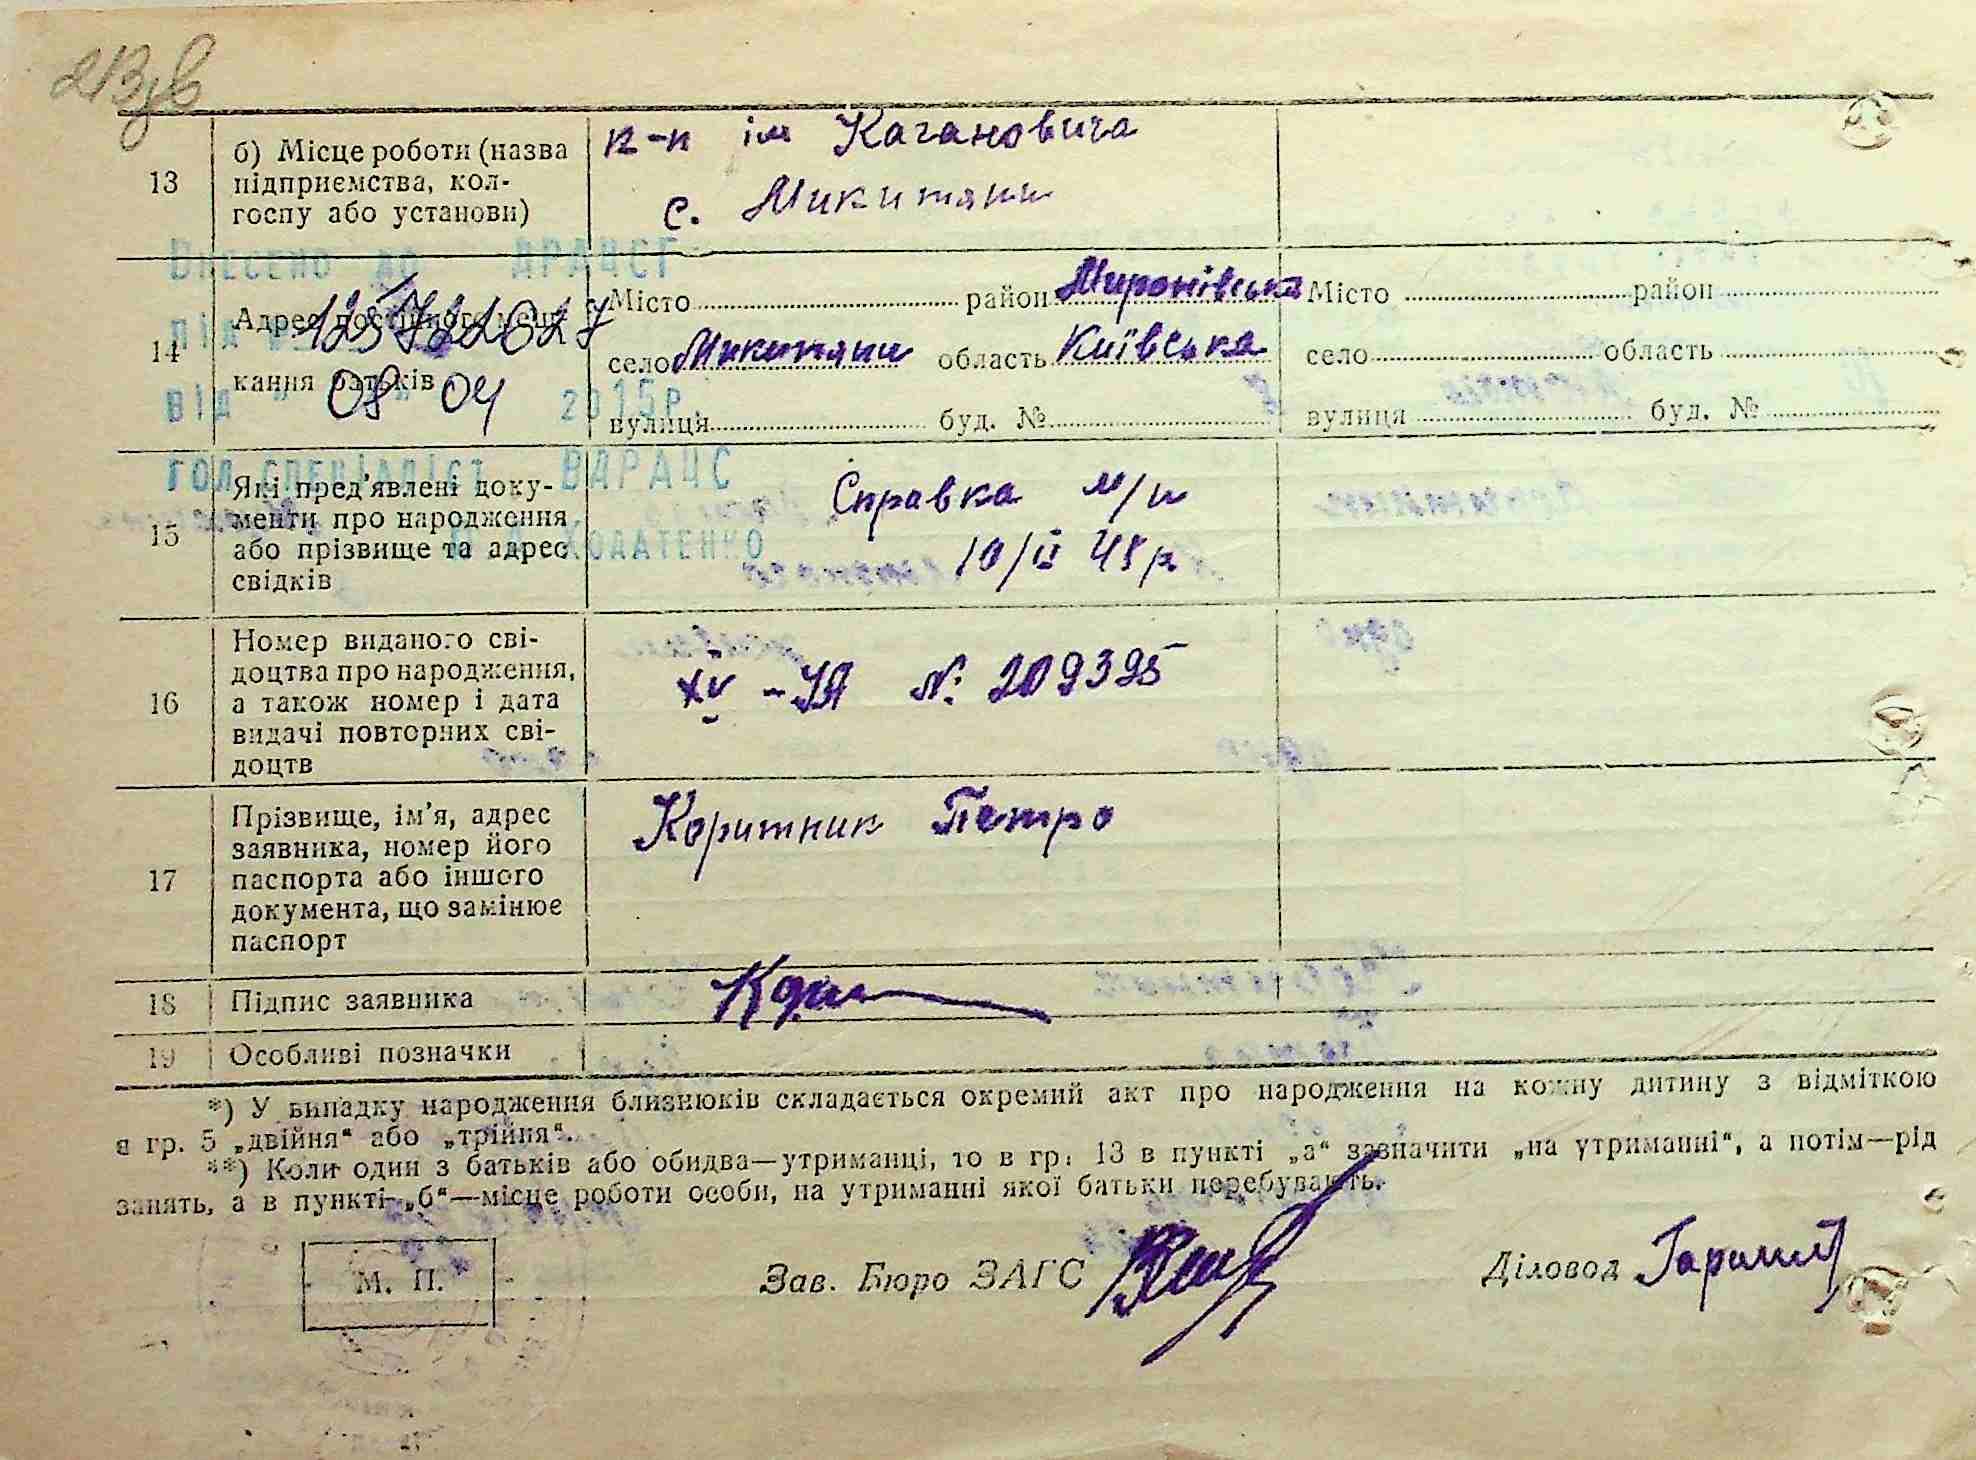 213зв
13
б) Місце роботи (назва
підприємства, кол-
госпу або установи)
к-п ім Кагановича
с. Микитяни
Внесено до ДРАЦСГ
під №
від " " 2015р.
гол. спеціаліст ВДРАЦС
Ходатенко
08 04
14
Адрес постійного меш-
кання батьків
Місто район Миронівська
село Микитяни область Київська
вулиця буд. №
Місто район
село область
вулиця буд. №
15
Які пред'явлені доку-
менти про народження
або прізвище та адрес
свідків
Справка м/п
10/ІІ 48р
16
Номер виданого сві-
доцтва про народження,
а також номер і дата
видачі повторних сві-
доцтв
XV -УЯ № 209395
17
Прізвище, ім'я, адрес
заявника, номер його
паспорта або іншого
документа, що замінює
паспорт
Коритник Петро
18
Підпис заявника
19
Особливі позначки
*) У випадку народження близнюків складається окремий акт про народження на кожну дитину з відміткою
в гр. 5 „двійня“ або „трійня“.
**) Коли один з батьків або обидва—утриманці, то в гр. 13 в пункті „а“ зазначити „на утриманні“, а потім—рід
занять, а в пункті „б“—місце роботи особи, на утриманні якої батьки перебувають.
М. П.
Зав. Бюро ЗАГС
Діловод